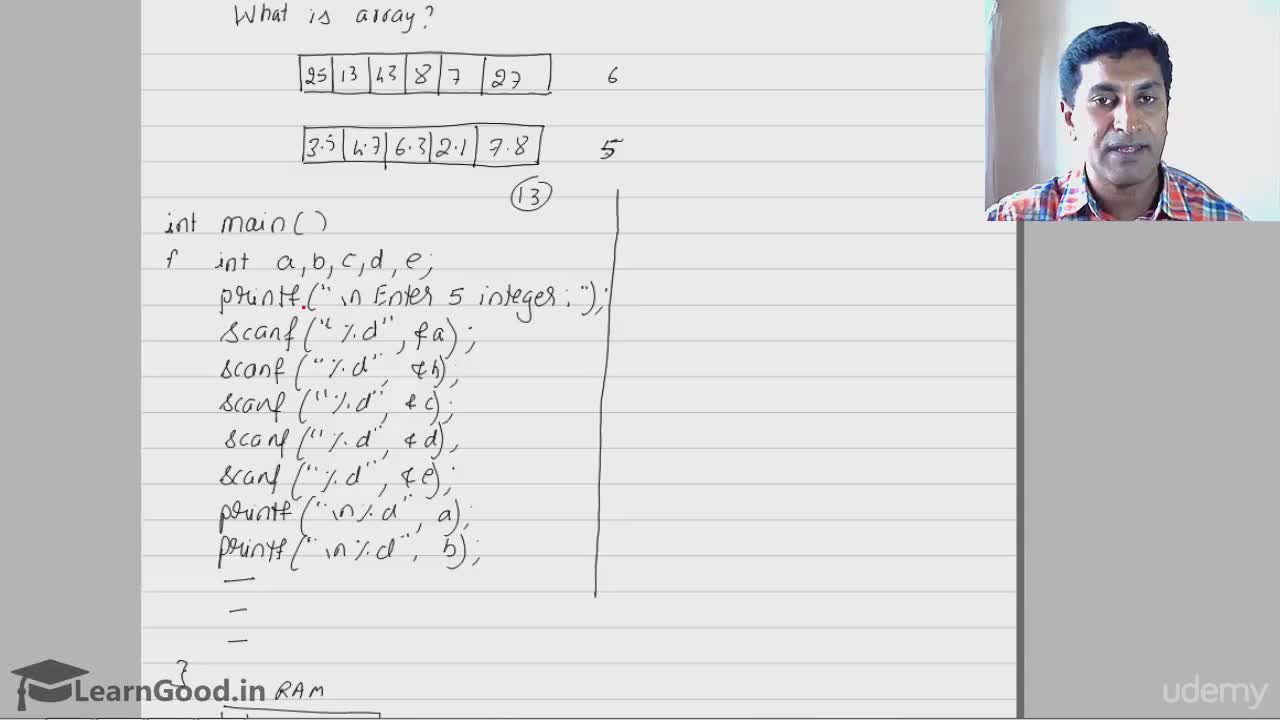 What is array?
25 13 43 8 7 27 6
3.5 4.7 6.3 2.1 7.8 5
13
int main()
{ int a,b,c,d,e;
printf("\n Enter 5 integer:");
scanf("%d", &a);
scanf("%d", &b);
scanf("%d", &c);
scanf("%d", &d);
scanf("%d", &e);
printf("\n%d", a);
printf("\n%d", b);
—
—
—
}
LearnGood.in RAM
udemy